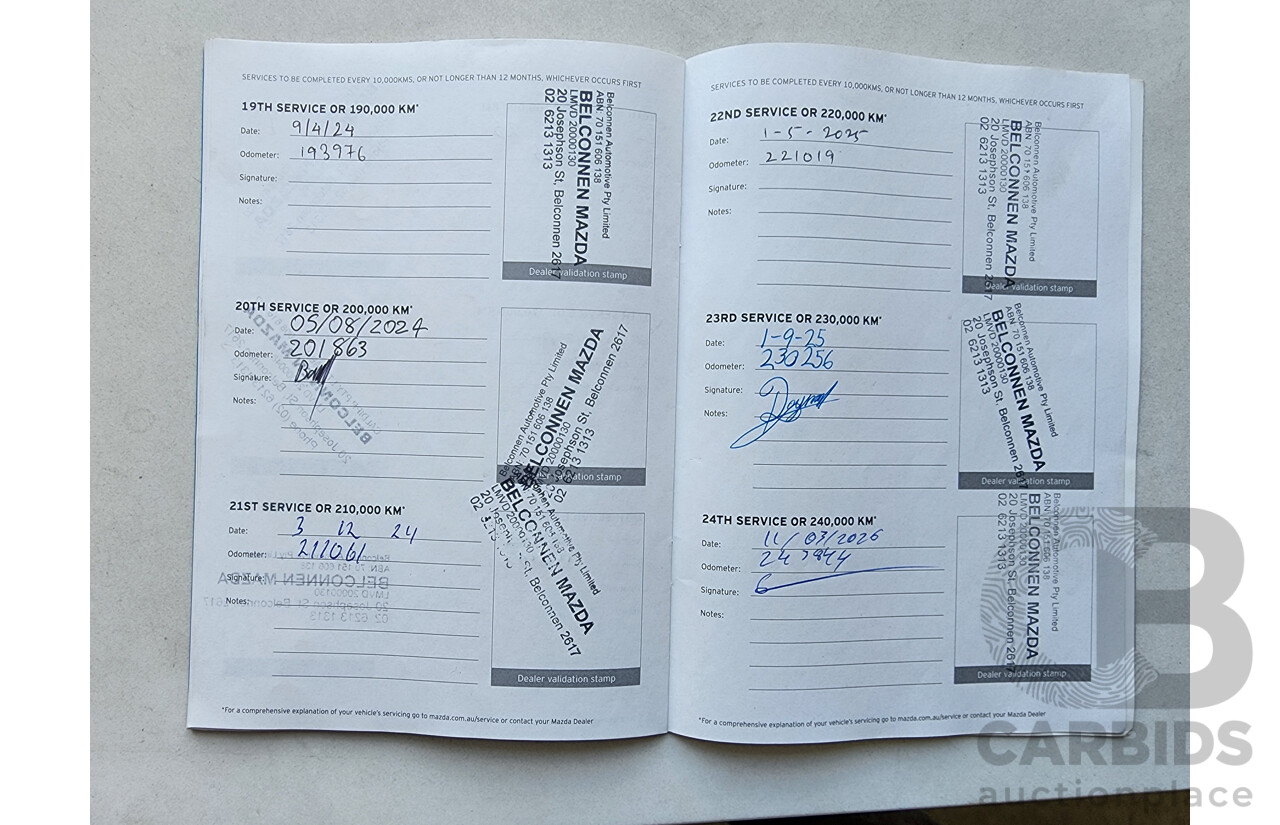 SERVICES TO BE COMPLETED EVERY 10,000KMS, OR NOT LONGER THAN 12 MONTHS, WHICHEVER OCCURS FIRST
19TH SERVICE OR 190,000 KM*
Date: 9/4/24
Odometer: 193976
Signature:
Notes:
Belconnen Automotive Pty Limited
ABN: 70 151 606 138
BELCONNEN MAZDA
LMVD 20000130
20 Josephson St, Belconnen 2617
02 6213 1313
Dealer validation stamp
20TH SERVICE OR 200,000 KM*
Date: 05/08/2024
Odometer: 201863
Signature:
Notes:
Belconnen Automotive Pty Limited
ABN: 70 151 606 138
BELCONNEN MAZDA
LMVD 20000130
20 Josephson St, Belconnen 2617
02 6213 1313
Dealer validation stamp
21ST SERVICE OR 210,000 KM*
Date: 3 12 24
Odometer: 211061
Signature:
Notes:
BELCONNEN MAZDA
LMVD 20000130
20 Josephson St, Belconnen 2617
Dealer validation stamp
*For a comprehensive explanation of your vehicle's servicing go to mazda.com.au/service or contact your Mazda Dealer
SERVICES TO BE COMPLETED EVERY 10,000KMS, OR NOT LONGER THAN 12 MONTHS, WHICHEVER OCCURS FIRST
22ND SERVICE OR 220,000 KM*
Date: 1-5-2025
Odometer: 221019
Signature:
Notes:
Belconnen Automotive Pty Limited
ABN: 70 151 606 138
BELCONNEN MAZDA
LMVD 20000130
20 Josephson St, Belconnen 2617
02 6213 1313
Dealer validation stamp
23RD SERVICE OR 230,000 KM*
Date: 1-9-25
Odometer: 230256
Signature:
Notes:
Belconnen Automotive Pty Limited
ABN: 70 151 606 138
BELCONNEN MAZDA
LMVD 20000130
20 Josephson St, Belconnen 2617
02 6213 1313
Dealer validation stamp
24TH SERVICE OR 240,000 KM*
Date: 11/03/2026
Odometer: 243944
Signature:
Notes:
Belconnen Automotive Pty Limited
ABN: 70 151 606 138
BELCONNEN MAZDA
LMVD 20000130
20 Josephson St, Belconnen 2617
02 6213 1313
Dealer validation stamp
*For a comprehensive explanation of your vehicle's servicing go to mazda.com.au/service or contact your Mazda Dealer
B
CARBIDS
auctionplace